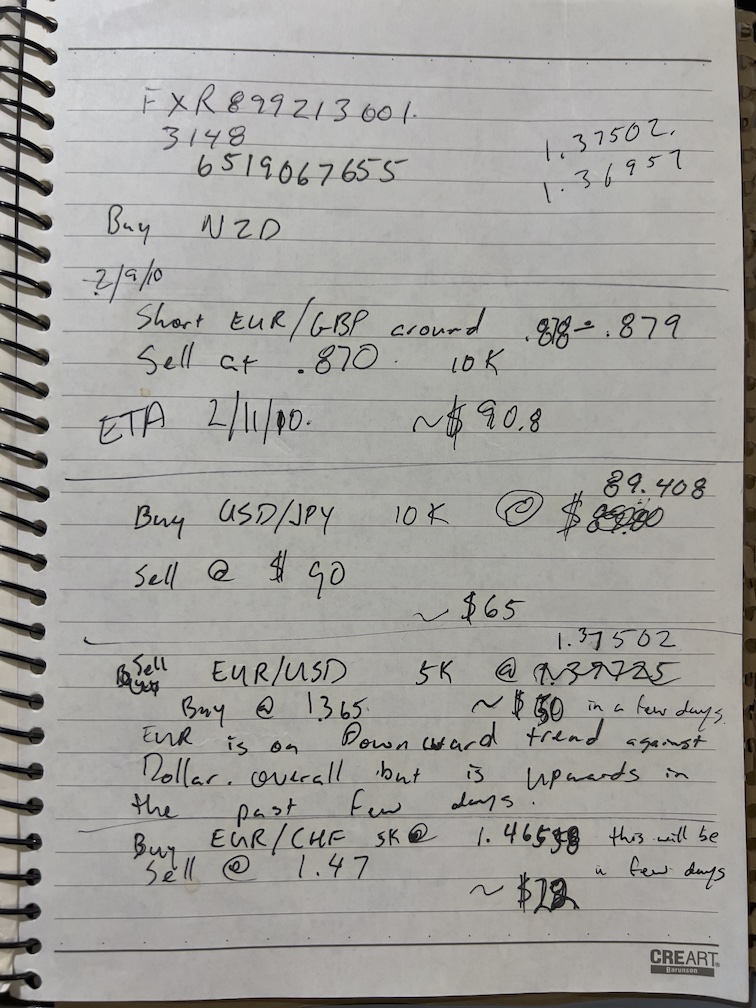 FXR899213601.
3148
6519067655
1.37502.
1.36957
Buy NZD
2/9/10
Short EUR/GBP around .878 - .879
Sell at .870. 10K
ETA 2/11/10. ~$90.8
89.408
Buy USD/JPY 10K @ $
Sell @ $ 90
~ $65
1.37502
Sell EUR/USD 5K @
Buy @ 1.365 ~ $50 in a few days.
EUR is on Downward trend against
Dollar. overall but is upwards in
the past few days.
Buy EUR/CHF 5K @ 1.465 this will be
Sell @ 1.47 in a few days
~ $
CREART
Barunson